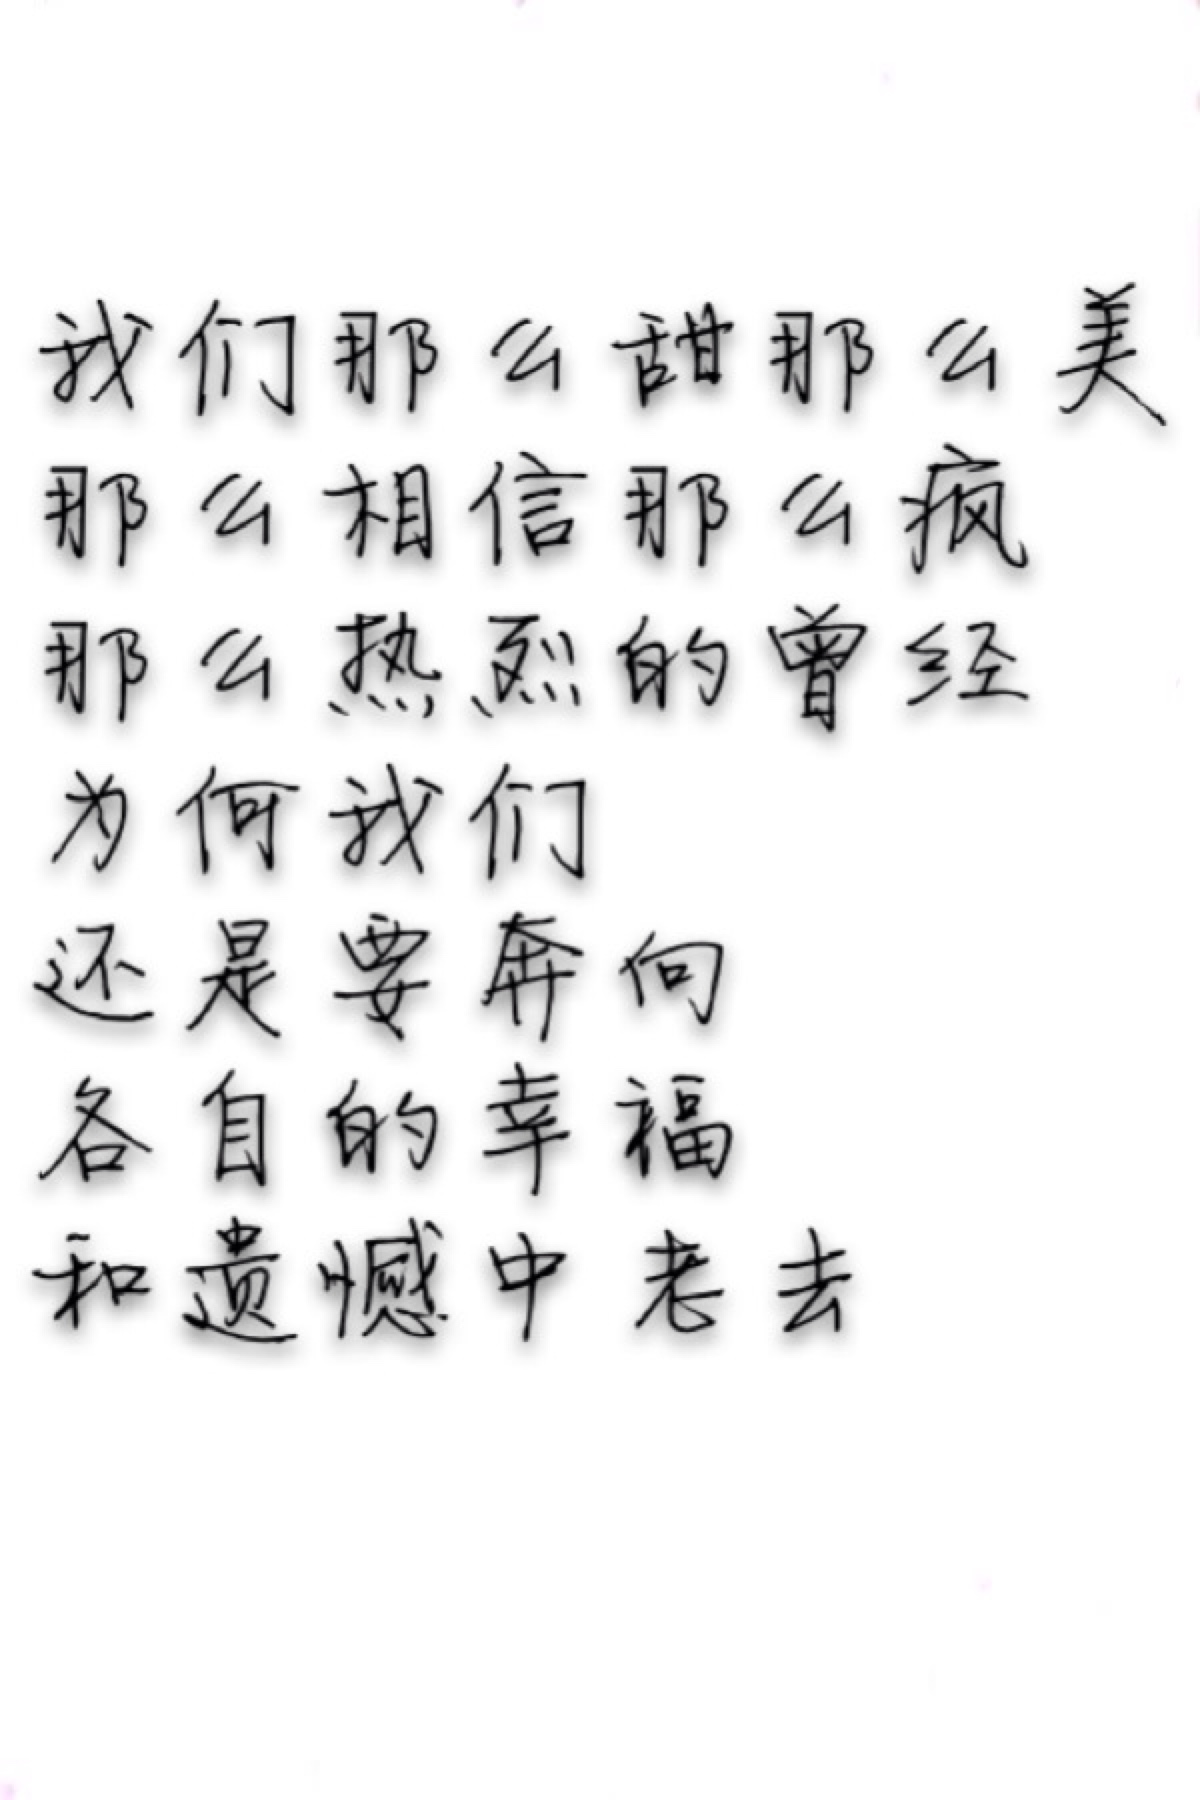 我们那么甜那么美
那么相信那么疯
那么热烈的曾经
为何我们
还是要奔向
各自的幸福
和遗憾中老去